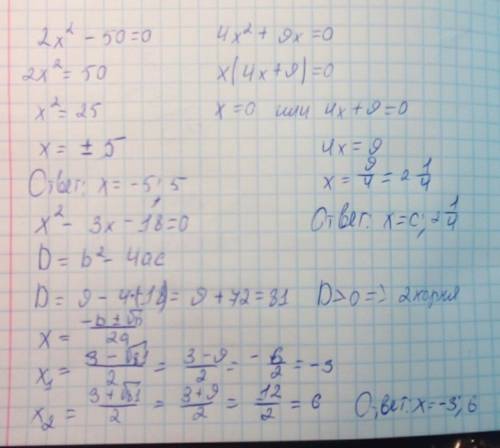 2x² - 50 = 0
2x² = 50
x² = 25
x = ± 5
Ответ: x = -5; 5
4x² + 9x = 0
x(4x + 9) = 0
x = 0 или 4x + 9 = 0
4x = 9
x = 9/4 = 2 1/4
Ответ: x = 0; 2 1/4
x² - 3x - 18 = 0
D = b² - 4ac
D = 9 - 4·(-18) = 9 + 72 = 81 D > 0 => 2 корня
x = (-b ± √D)/2a
x₁ = (3 - √81)/2 = (3 - 9)/2 = -6/2 = -3
x₂ = (3 + √81)/2 = (3 + 9)/2 = 12/2 = 6 Ответ: x = -3; 6